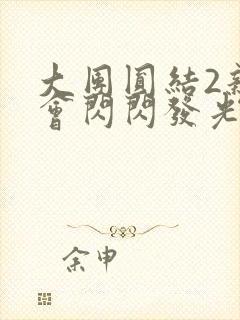 大團圓結2
會閃閃發光
余申